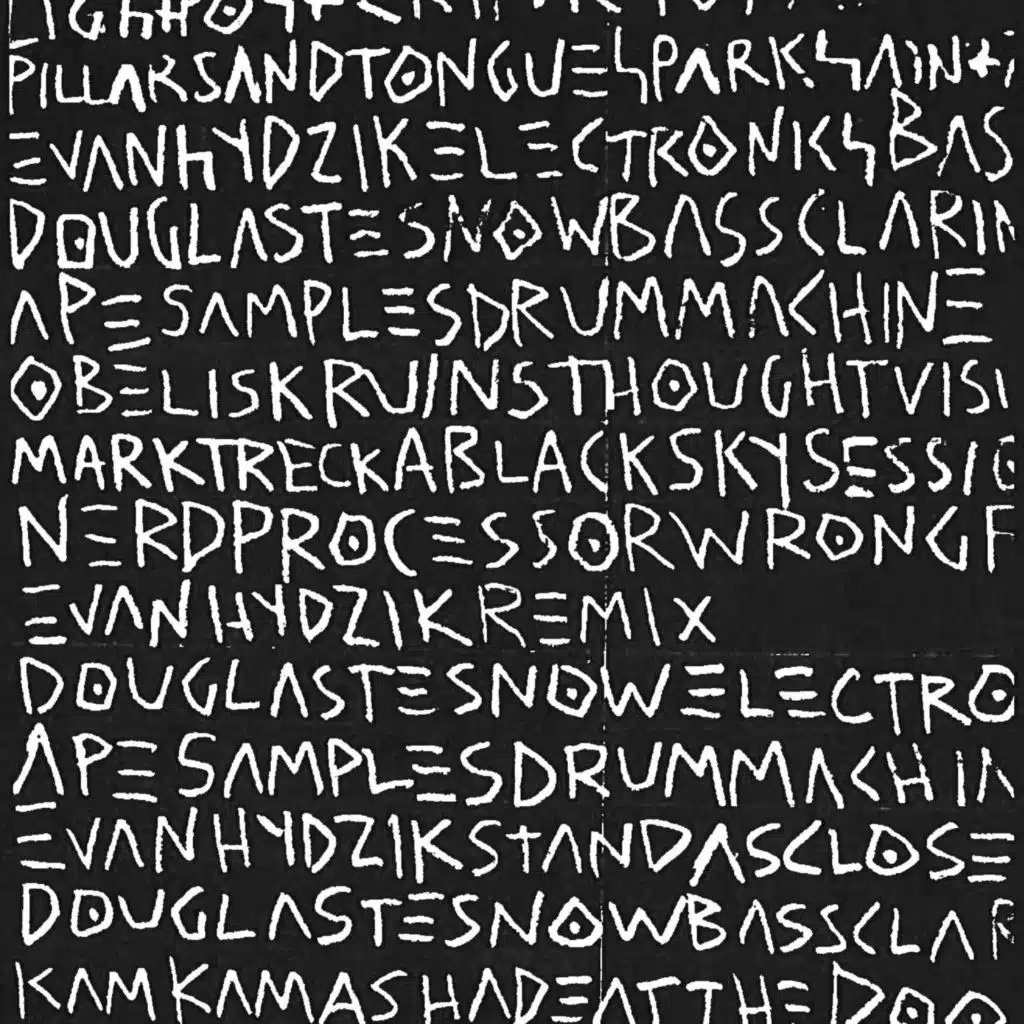 PILLARSANDTONGUESPARKSAINT
EVANHYDZIKELECTRONICSBAS
DOUGLASTESNOWBASSCLARIN
APESAMPLESDRUMMACHINE
OBELISKRUINSTHOUGHTVISI
MARKTRECKABLACKSKYSESSIO
NERDPROCESSORWRONGF
EVANHYDZIKREMIX
DOUGLASTESNOWELECTRO
APESAMPLESDRUMMACHIN
EVANHYDZIKSTANDASCLOSE
DOUGLASTESNOWBASSCLAR
KAMKAMASHADEATTHEDOO